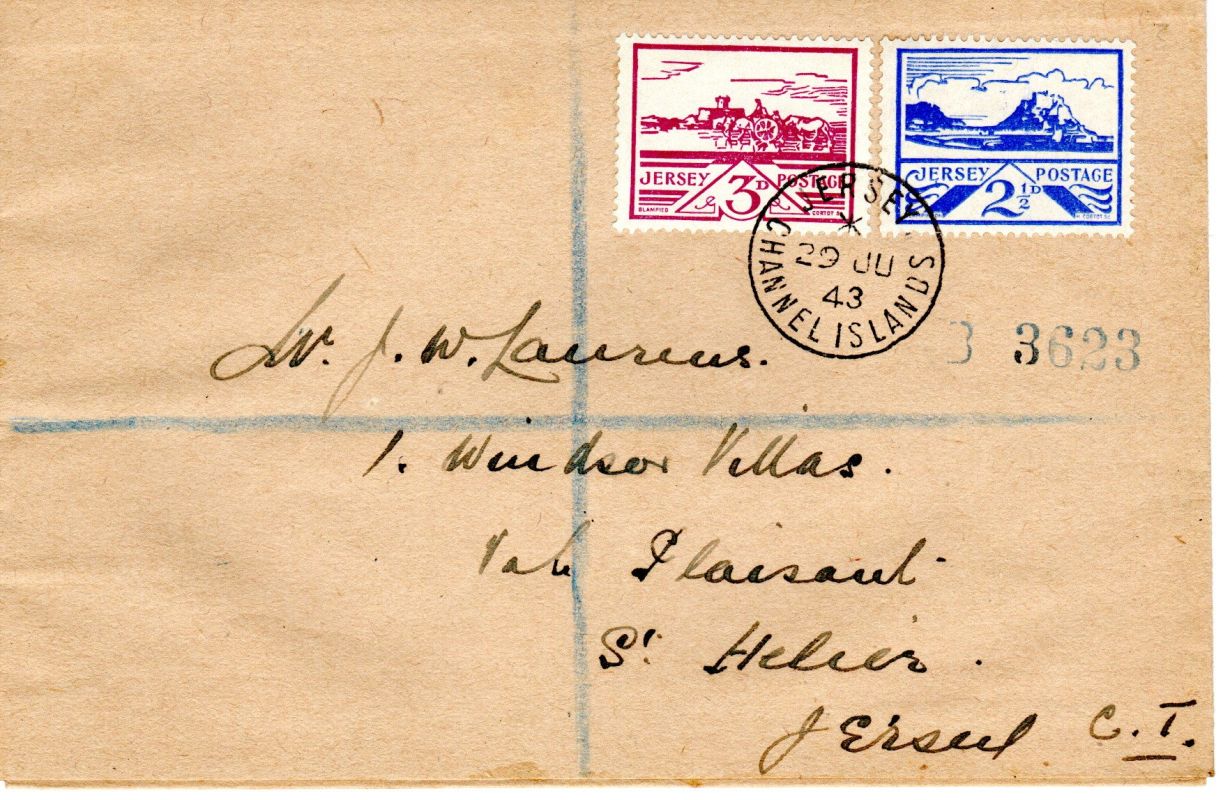 JERSEY 3D POSTAGE
BLAMPIED CORTOT SC
JERSEY 2½D POSTAGE
H. CORTOT SC.
JERSEY
29 JU
43
CHANNEL ISLANDS
3623
Mr. J. W. Laurens.
1. Windsor Villas.
Plaisant
St. Helier.
Jersey C.I.